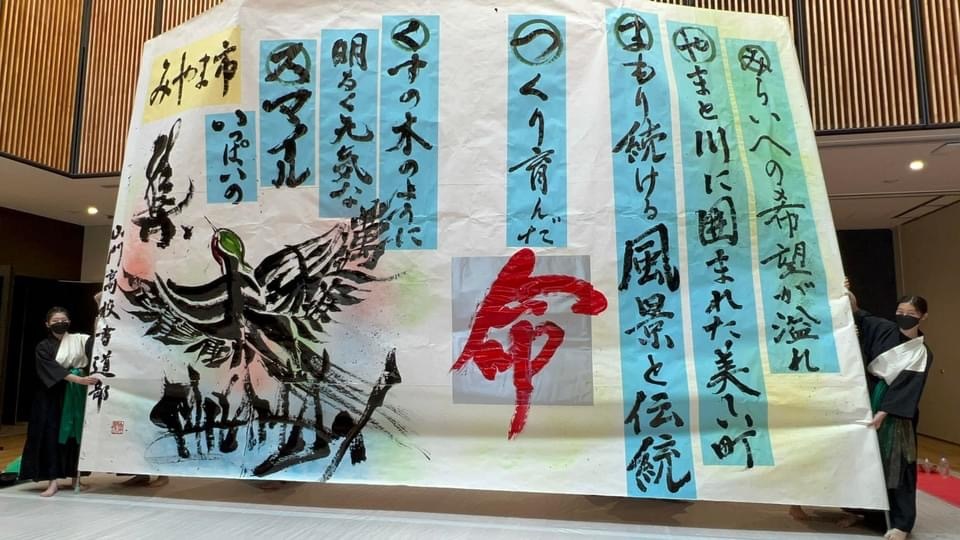 みらいへの希望が溢れ
やまと川に囲まれた美しい町
まもり続ける風景と伝統
つくり育んだ
命
くすの木のように
明るく元気な
スマイル
いっぱいの
みやま市
山門高校書道部